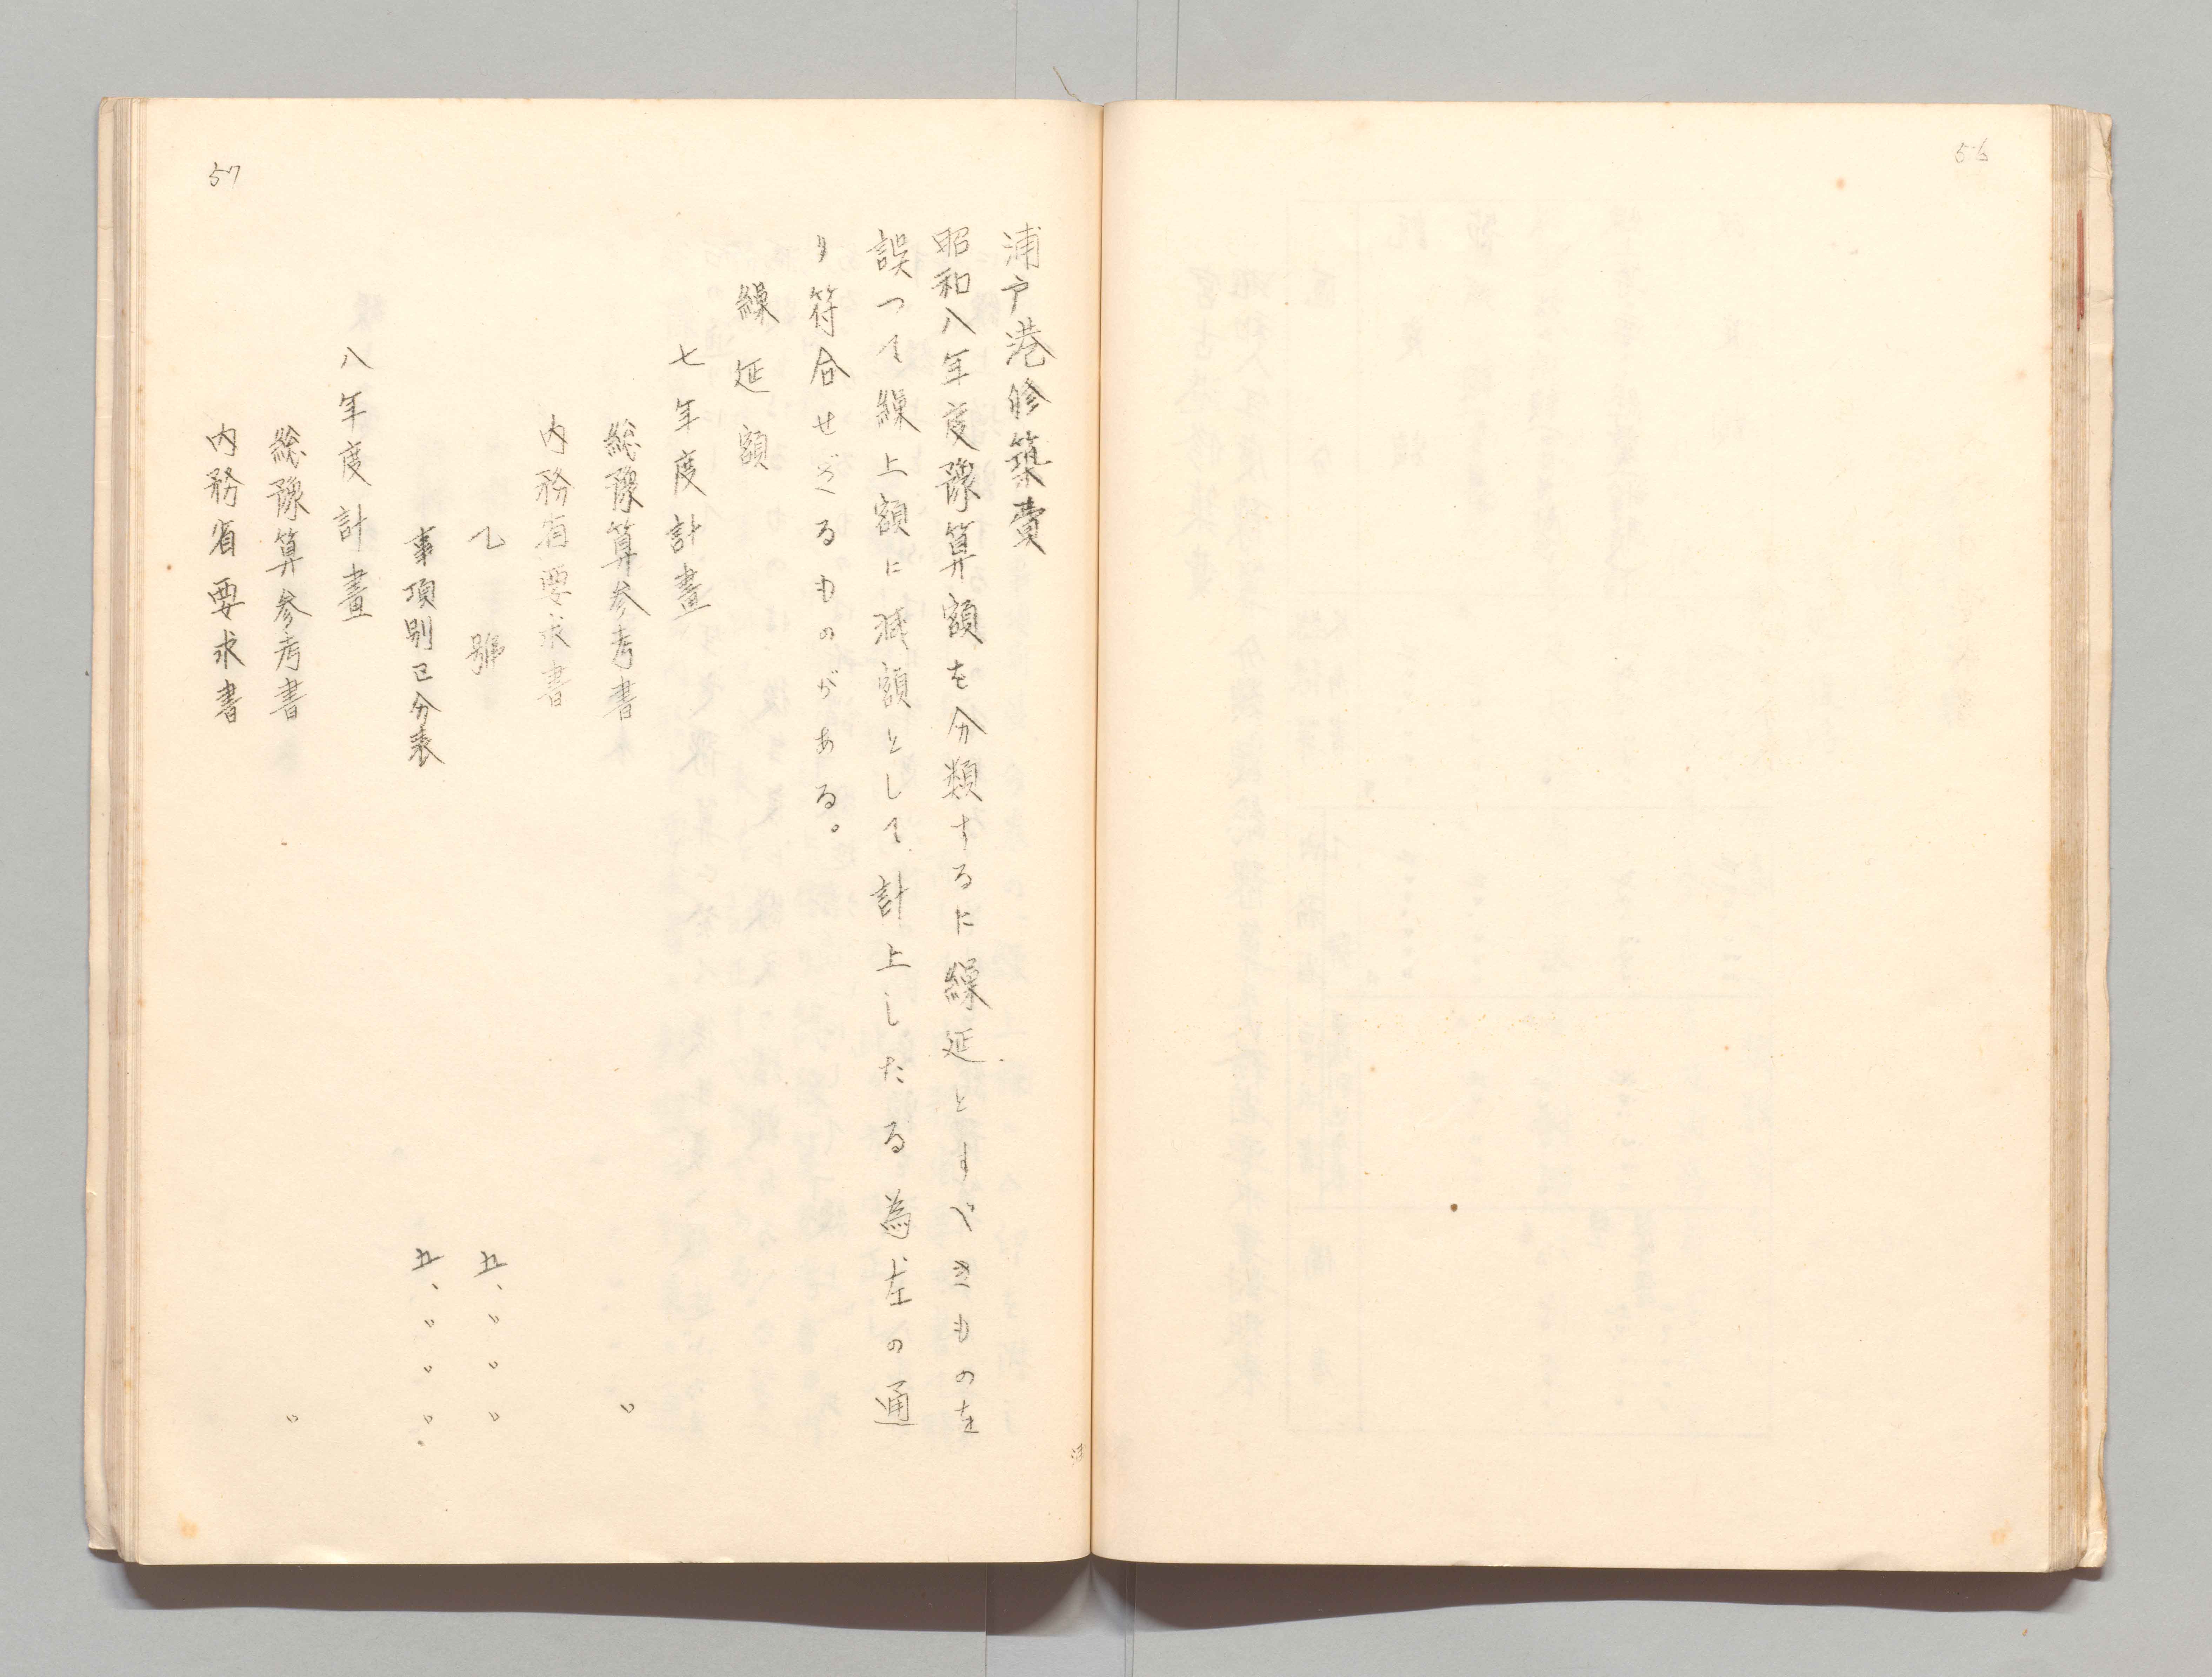 56
浦戸港修築費
昭和八年度豫算額を分類するに繰延とすべきものを
誤つて繰上額に減額として計上したる為左の通
り符合せざるものがある。
繰延額
七年度計畫
総豫算参考書 〃
内務省要求書
乙號 五、〃〃〃
事項別区分表 五、〃〃〃
八年度計畫
総豫算参考書 〃
内務省要求書
57